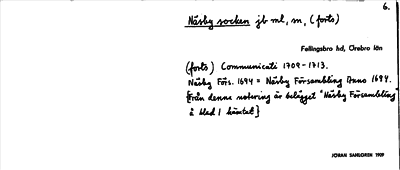 6.
Näsby socken jb ml, m, (forts)
Fellingsbro hd, Örebro län
(forts) Communicati 1709-1713.
Näsby Förs. 1694 = Näsby Försambling Anno 1694.
[Från denna notering är belägget "Näsby Försambling"
å blad 1 hämtat]
JÖRAN SAHLGREN 1909